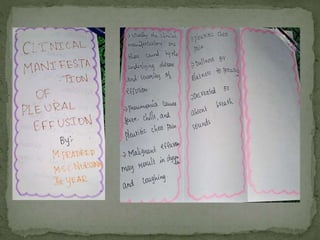 CLINICAL
MANIFESTA
-TION
OF
PLEURAL
EFFUSION
By:-
M. PRADEEP
MSC NURSING
IIst YEAR
→ Usually the clinical
manifestations are
those caused by the
underlying disease
and severity of
effusion
→ Pneumonia causes
fever, chills, and
pleuritic chest pain
→ Malignant effusion
may result in dysp-
nea
and coughing
→ pleuritic chest
pain
→ Dullness or
flatness to percuss
→ Decreased or
absent breath
sounds